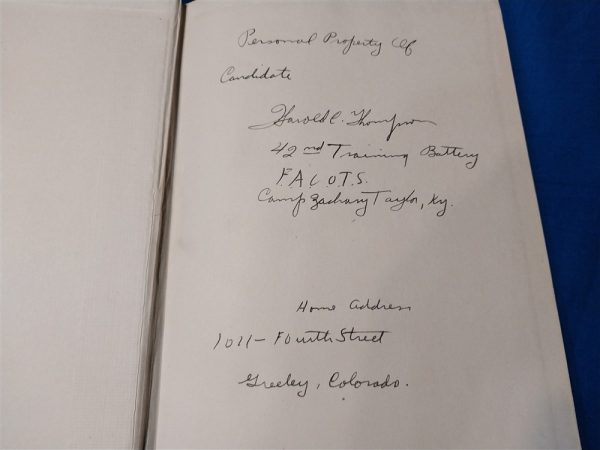 Personal Property Of
Candidate
Harold C. Thompson
42nd Training Battery
F.A.C.O.T.S.
Camp Zachary Taylor, Ky.
Home Address
1011 - Fourth Street
Greeley, Colorado.